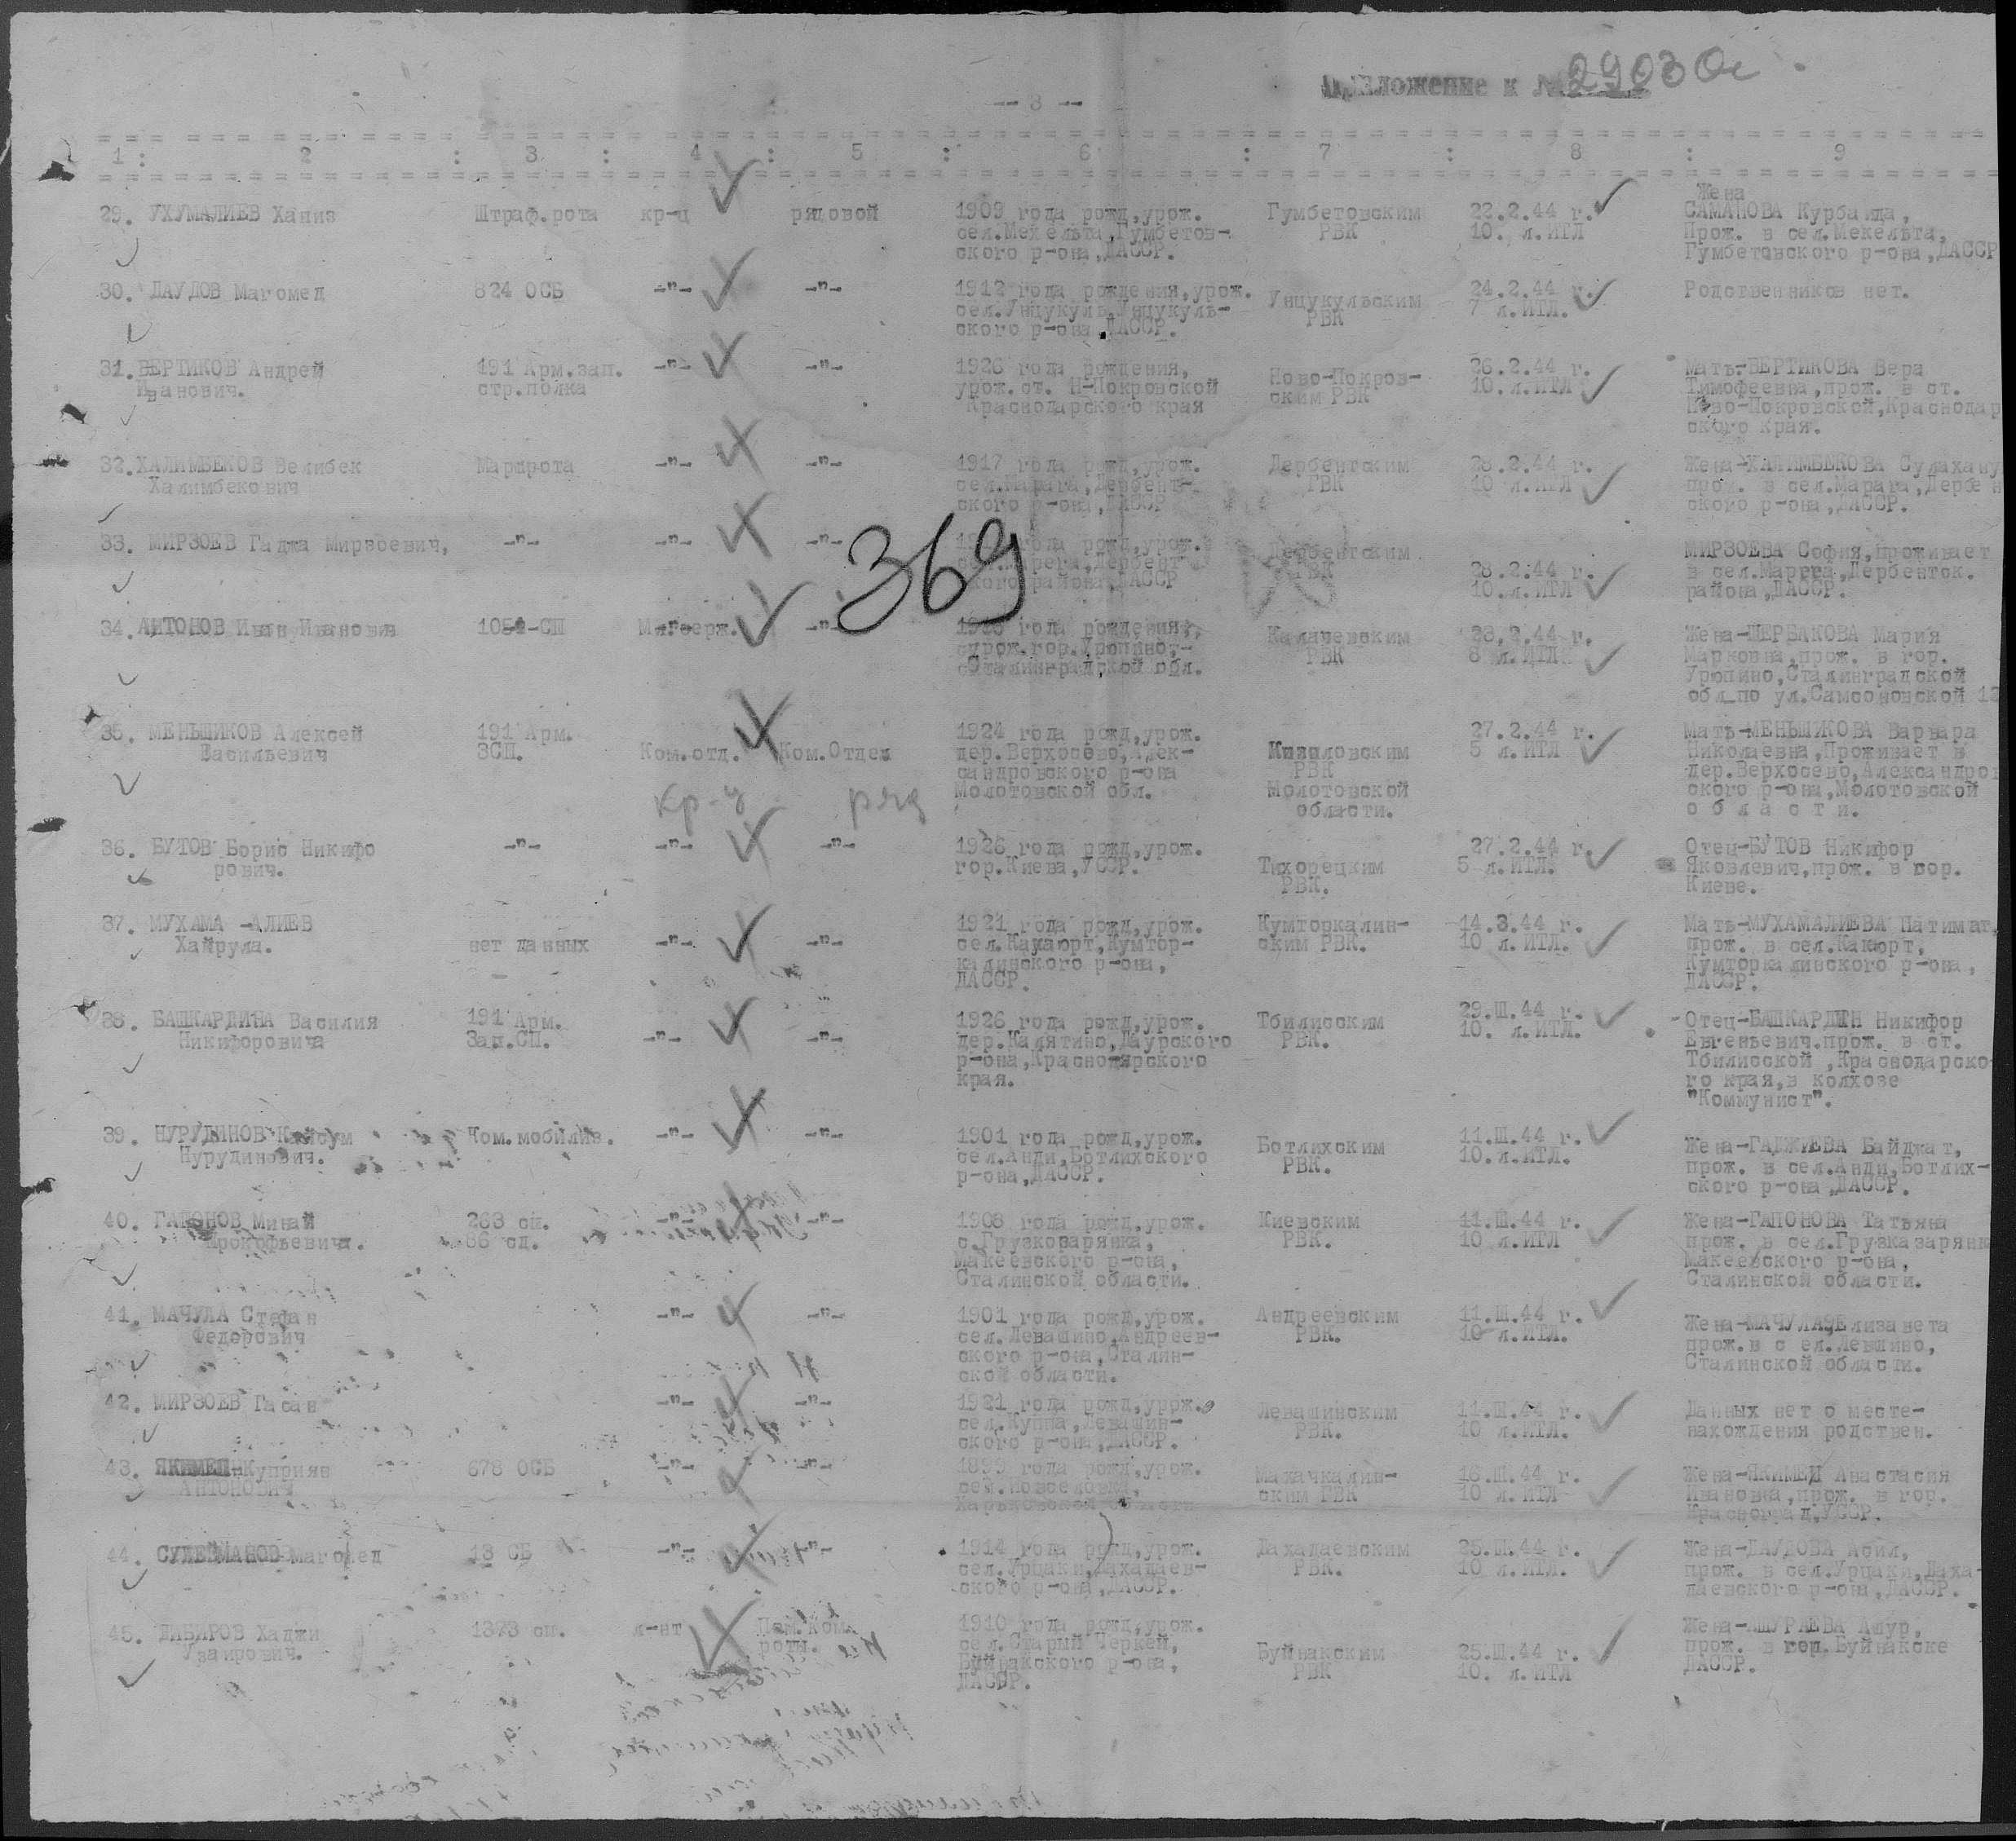 Приложение к № 29030с
-- 3 --
1 : 2 : 3 : 4 : 5 : 6 : 7 : 8 : 9
29. УХУМАЛИЕВ Ханиз Штраф.рота кр-ц рядовой 1909 года рожд,урож. Гумбетовским 22.2.44 г. Жена
сел.Мехельта,Гумбетов- РВК 10. л.ИТЛ САМАНОВА Курбаида,
ского р-она,ДАССР. Прож. в сел.Мекельта,
Гумбетовского р-она,ДАССР
30. ДАУДОВ Магомед 824 ОСБ -"- -"- 1912 года рождения,урож. Унцукульским 24.2.44 г. Родственников нет.
сел.Унцукуль,Унцукуль- РВК 7 л.ИТЛ.
ского р-она,ДАССР.
31. ВЕРТИКОВ Андрей 191 Арм.зап. -"- -"- 1926 года рождения, Ново-Покров- 26.2.44 г. Мать-ВЕРТИКОВА Вера
Иванович. стр.полка урож.ст. Н-Покровской ским РВК 10.л.ИТЛ Тимофеевна,прож. в ст.
Краснодарского края Ново-Покровской,Краснодар
ского края.
32. ХАЛИМБЕКОВ Велибек Маршрота -"- -"- 1917 года рожд,урож. Дербентским 28.2.44 г. Жена-ХАЛИМБЕКОВА Сулахану
Халимбекович сел.Марага,Дербент- РВК 10 л.ИТЛ прож. в сел.Марага,Дербен
ского р-она,ДАССР ского р-она,ДАССР.
33. МИРЗОЕВ Гаджа Мирзоевич, -"- -"- -"- года рожд,урож. Дербентским МИРЗОЕВА София,проживает
сел.Марега,Дербент РВК 28.2.44 г. в сел.Марега,Дербентск.
ского района,ДАССР 10.л.ИТЛ района,ДАССР.
369
34. АНТОНОВ Иван Иванович -СП -"- года рождения, Калачевским 28.2.44 г. Жена-ЩЕРБАКОВА Мария
урож.гор.Урюпино,- РВК 8 л.ИТЛ Марковна,прож. в гор.
Сталинградской обл. Урюпино,Сталинградской
обл по ул.Самсоновской 12
35. МЕНЬШИКОВ Алексей 191 Арм. Ком.отд. Ком.Отдел 1924 года рожд,урож. Кизиловским 27.2.44 г. Мать-МЕНЬШИКОВА Варвара
Васильевич ЗСП. дер.Верхосево,Алек- РВК 5 л.ИТЛ Николаевна,Проживает в
сандровского р-она Молотовской дер.Верхосево,Александров
Молотовской обл. области. ского р-она,Молотовской
кр-ц ряд о б л а с т и.
36. БУТОВ Борис Никифо -"- -"- -"- 1926 года рожд,урож. Тихорецким 27.2.44 г. Отец-БУТОВ Никифор
рович. гор.Киева,УССР. РВК. 5 л.ИТЛ. Яковлевич,прож. в гор.
Киеве.
37. МУХАМА -АЛИЕВ нет данных -"- -"- 1921 года рожд,урож. Кумторкалин- 14.3.44 г. Мать-МУХАМАЛИЕВА Патимат,
Хайрула. сел.Какаюрт,Кумтор- ским РВК. 10 л.ИТЛ. прож. в сел.Какюрт,
калинского р-она, Кумторкалинского р-она,
ДАССР. ДАССР.
38. БАШКАРДИНА Василия 191 Арм. -"- -"- 1926 года рожд,урож. Тбилисским 29.Ш.44 г. Отец-БАШКАРДИН Никифор
Никифоровича Зап.СП. дер.Калятино,Даурского РВК. 10. л.ИТЛ. Евгеньевич.прож. в ст.
р-она,Красноярского Тбилисской ,Краснодарско
края. го края,в колхозе
"Коммунист".
39. НУРУДИНОВ Ком.мобилиз. -"- -"- 1901 года рожд,урож. Ботлихским 11.Ш.44 г. Жена-ГАДЖИЕВА Байджат,
Нурудинович. сел.Анди,Ботлихского РВК. 10.л.ИТЛ. прож. в сел.Анди,Ботлих-
р-она,ДАССР. ского р-она,ДАССР.
40. ГАПОНОВ Минай 263 сп. -"- -"- 1908 года рожд,урож. Киевским 11.Ш.44 г. Жена-ГАПОНОВА Татьяна
Прокофьевича. 86 сд. с.Грузкозарянка, РВК. 10 л.ИТЛ прож. в сел.Грузказарянк
Макеевского р-она, Макеевского р-она,
Сталинской области. Сталинской области.
41. МАЧУЛА Стефан -"- -"- 1901 года рожд,урож. Андреевским 11.Ш.44 г. Жена-МАЧУЛА Елизавета
Федорович сел.Левашино,Андреев- РВК. 10 л.ИТЛ. прож.в с ел.Левшино,
ского р-она,Сталин- Сталинской области.
ской области.
42. МИРЗОЕВ Гасан -"- -"- 1921 года рожд,урож. Левашинским 11.Ш.44 г. Данных нет о месте-
сел.Куппа,Левашин- РВК. 10 л.ИТЛ. нахождения родствен.
ского р-она,ДАССР.
43. ЯКИМЕЦ Куприян 678 ОСБ -"- -"- 1899 года рожд,урож. Махачкалин- 16.Ш.44 г. Жена-ЯКИМЕЦ Анастасия
Антонович сел.Новоселовка, ским ГВК 10 л.ИТЛ Ивановна,прож. в гор.
Харьковской области Красноград,УССР.
44. СУЛЕЙМАНОВ Магомед 13 СБ -"- -"- 1914 года рожд,урож. Дахадаевским 25.Ш.44 г. Жена-ДАУДОВА Асия,
сел.Урцаки,Дахадаев- РВК. 10 л.ИТЛ. прож. в сел.Урцаки,Даха-
ского р-она,ДАССР. даевского р-она,ДАССР.
45. ДАБИРОВ Хаджи 1373 сп. л-нт Пом.Ком. 1910 года рожд,урож. Буйнакским 25.Ш.44 г. Жена-АШУРАЕВА Ашур,
Узаирович. роты. сел.Старый Черкей, РВК 10. л.ИТЛ прож. в гор.Буйнакске
Буйнакского р-она, ДАССР.
ДАССР.